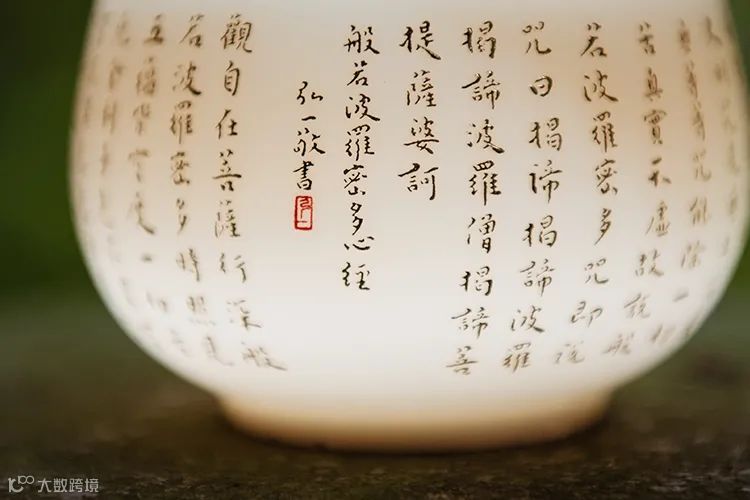 無等等咒能除一切
苦真實不虛故說般
若波羅密多咒即說
咒曰揭諦揭諦波羅
揭諦波羅僧揭諦菩
提薩婆訶
般若波羅密多心經
弘一敬書
弘一
觀自在菩薩行深般
若波羅密多時照見
五蘊皆空度一切
大数跨境